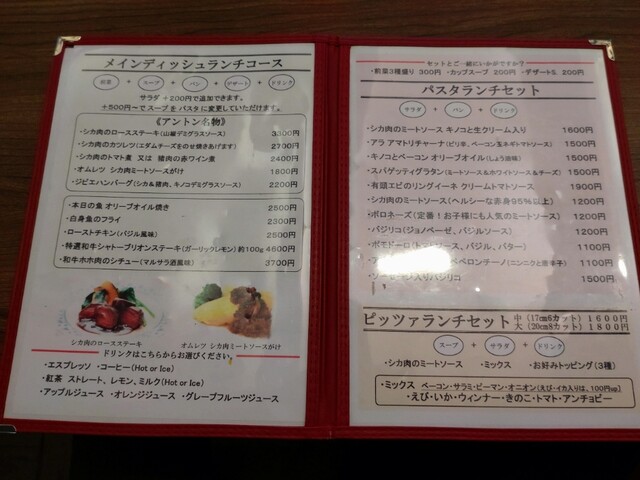 メインディッシュランチコース
前菜 + スープ + パン + デザート + ドリンク
サラダ +200円で追加できます。
+500円~でスープをパスタに変更していただけます。
《アントン名物》
・シカ肉のロースステーキ(山椒デミグラスソース) 3300円
・シカ肉のカツレツ(エダムチーズをのせ焼きあげます) 2700円
・シカ肉のトマト煮 又は 猪肉の赤ワイン煮 2400円
・オムレツ シカ肉ミートソースがけ 1800円
・ジビエハンバーグ(シカ&猪肉、キノコデミグラスソース) 2200円
・本日の魚 オリーブオイル焼き 2500円
・白身魚のフライ 2300円
・ローストチキン(バジル風味) 2500円
・特選和牛シャトーブリアンステーキ(ガーリックレモン) 約100g 4600円
・和牛ホホ肉のシチュー(マルサラ酒風味) 3700円
シカ肉のロースステーキ
オムレツ シカ肉ミートソースがけ
ドリンクはこちらからお選びください。
・エスプレッソ ・コーヒー(Hot or Ice)
・紅茶 ストレート、レモン、ミルク(Hot or Ice)
・アップルジュース ・オレンジジュース ・グレープフルーツジュース
セットとご一緒にいかがですか?
・前菜3種盛り 300円 ・カップスープ 200円 ・デザートS. 200円
パスタランチセット
サラダ + パン + ドリンク
・シカ肉のミートソース キノコと生クリーム入り 1600円
・アラ アマトリチャーナ(ピリ辛、ベーコン玉ネギトマトソース) 1500円
・キノコとベーコン オリーブオイル(しょう油味) 1500円
・スパゲッティグラタン(ミートソース&ホワイトソース&チーズ) 1500円
・有頭エビのリングイーネ クリームトマトソース 1900円
・シカ肉のミートソース(ヘルシーな赤身95%以上) 1200円
・ボロネーズ(定番!お子様にも人気のミートソース) 1200円
・バジリコ(ジェノベーゼ、バジルソース) 1200円
・ポモドーロ(トマトソース、バジル、バター) 1100円
ペペロンチーノ(ニンニクと唐辛子) 1100円
入りバジリコ 1500円
ピッツァランチセット 中(17cm6カット) 1600円
大(20cm8カット) 1800円
スープ + サラダ + ドリンク
・シカ肉のミートソース ・ミックス ・お好みトッピング(3種)
・ミックス ベーコン・サラミ・ピーマン・オニオン(えび・イカ入りは、100円up)
・えび・いか・ウィンナー・きのこ・トマト・アンチョビー